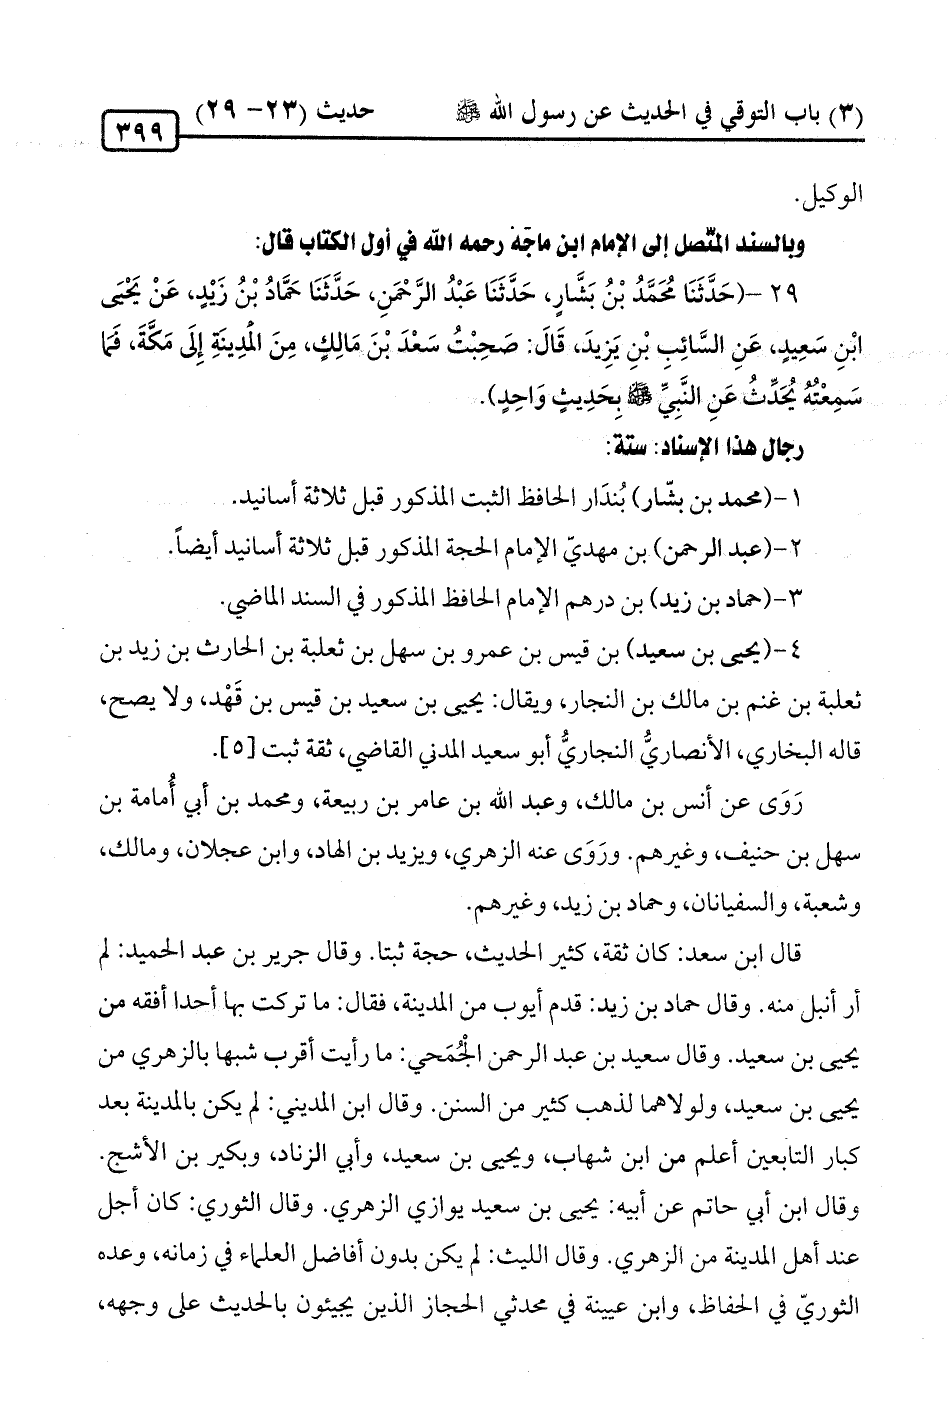 (٣) باب التوقي في الحديث عن رسول الله ﷺ حديث (٢٣- ٢٩) ٣٩٩
الوكيل.
وبالسند المتّصل إلى الإمام ابن ماجَهْ رحمه الله في أول الكتاب قال:
٢٩ -(حَدَّثَنَا مُحَمَّدُ بْنُ بَشَّارٍ، حَدَّثَنَا عَبْدُ الرَّحْمَنِ، حَدَّثَنَا حَمَّادُ بْنُ زَيْدٍ، عَنْ يَحْيَى
ابْنِ سَعِيدٍ، عَنِ السَّائِبِ بْنِ يَزِيدَ، قَالَ: صَحِبْتُ سَعْدَ بْنَ مَالِكٍ، مِنَ الْمَدِينَةِ إِلَى مَكَّةَ، فَمَا
سَمِعْتُهُ يُحَدِّثُ عَنِ النَّبِيِّ ﷺ بِحَدِيثٍ وَاحِدٍ).
رجال هذا الإسناد: ستة:
١-(محمد بن بشّار) بُندَار الحافظ الثبت المذكور قبل ثلاثة أسانيد.
٢-(عبد الرحمن) بن مهديّ الإمام الحجة المذكور قبل ثلاثة أسانيد أيضاً.
٣-(حماد بن زيد) بن درهم الإمام الحافظ المذكور في السند الماضي.
٤-(يحيى بن سعيد) بن قيس بن عمرو بن سهل بن ثعلبة بن الحارث بن زيد بن
ثعلبة بن غنم بن مالك بن النجار، ويقال: يحيى بن سعيد بن قيس بن قَهْد، ولا يصح،
قاله البخاري، الأنصاريُّ النجاريُّ أبو سعيد المدني القاضي، ثقة ثبت [٥].
رَوَى عن أنس بن مالك، وعبد الله بن عامر بن ربيعة، ومحمد بن أبي أُمامة بن
سهل بن حنيف، وغيرهم. ورَوَى عنه الزهري، ويزيد بن الهاد، وابن عجلان، ومالك،
وشعبة، والسفيانان، وحماد بن زيد، وغيرهم.
قال ابن سعد: كان ثقة، كثير الحديث، حجة ثبتا. وقال جرير بن عبد الحميد: لم
أر أنبل منه. وقال حماد بن زيد: قدم أيوب من المدينة، فقال: ما تركت بها أحدا أفقه من
يحيى بن سعيد. وقال سعيد بن عبد الرحمن الْجُمَحي: ما رأيت أقرب شبها بالزهري من
يحيى بن سعيد، ولولاهما لذهب كثير من السنن. وقال ابن المديني: لم يكن بالمدينة بعد
كبار التابعين أعلم من ابن شهاب، ويحيى بن سعيد، وأبي الزناد، وبكير بن الأشج.
وقال ابن أبي حاتم عن أبيه: يحيى بن سعيد يوازي الزهري. وقال الثوري: كان أجل
عند أهل المدينة من الزهري. وقال الليث: لم يكن بدون أفاضل العلماء في زمانه، وعده
الثوريّ في الحفاظ، وابن عيينة في محدثي الحجاز الذين يجيئون بالحديث على وجهه،